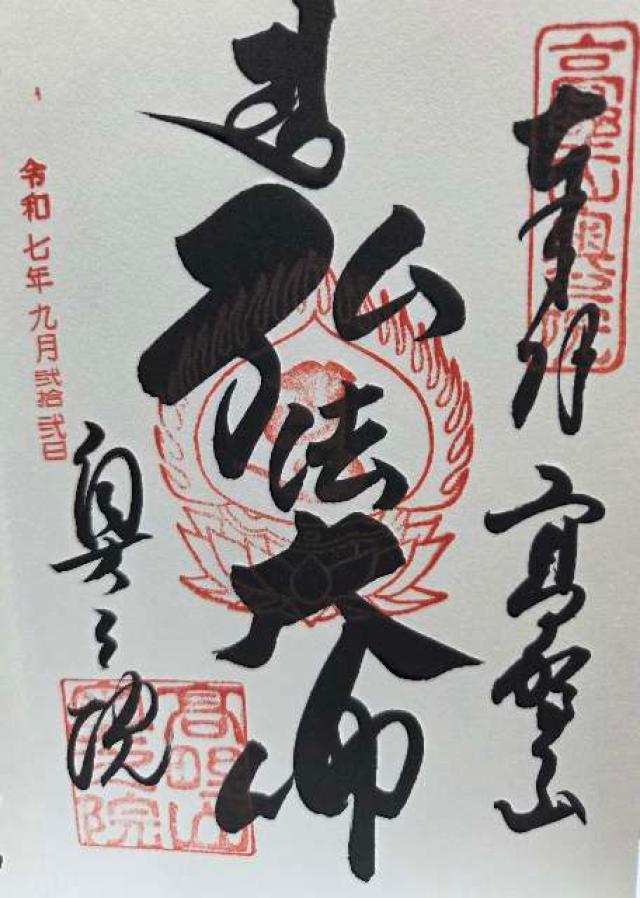 奉拝
高野山
高野山奥之院
弘法大師
令和七年九月弐拾弐日
奥之院
高野山奥之院